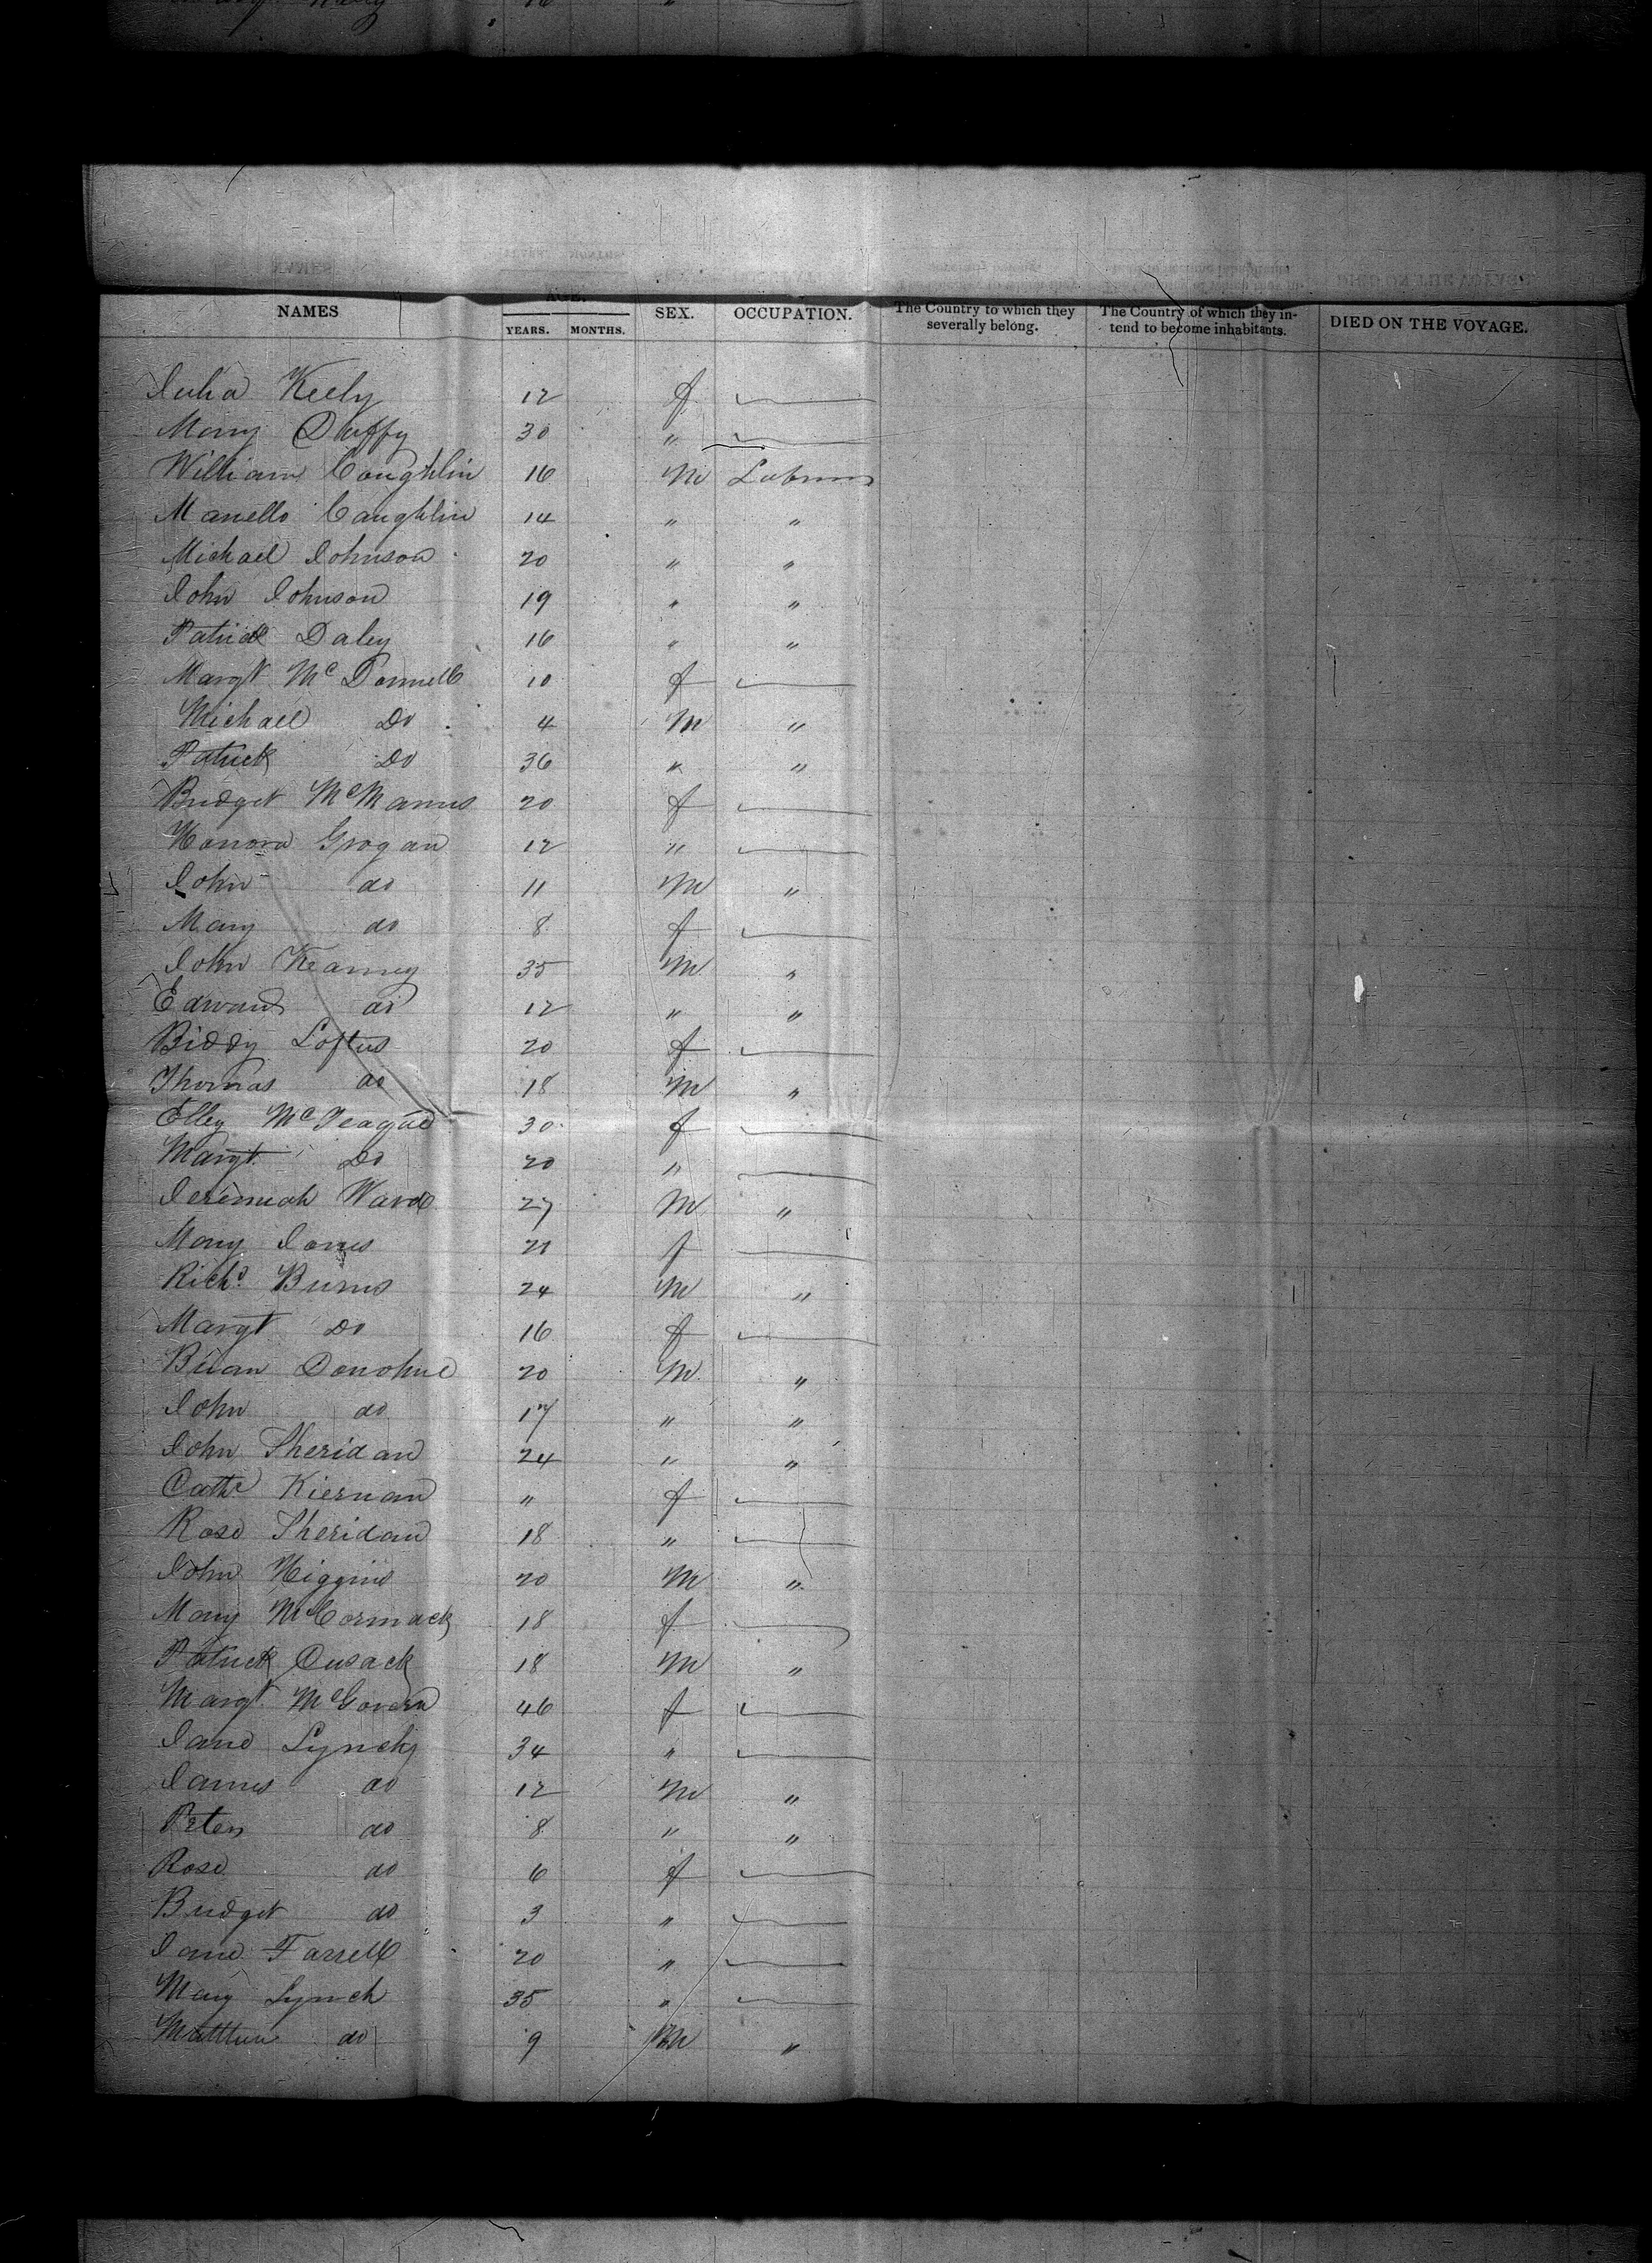 NAMES AGE. YEARS. MONTHS. SEX. OCCUPATION. The Country to which they severally belong. The Country of which they intend to become inhabitants. DIED ON THE VOYAGE.
Julia Keely 12 f
Mary Duffy 30 "
William Coughlin 16 M Labourer
Coughlin 14 " "
Michael Johnson 20 " "
John Johnson 19 " "
Patrick Daley 16 " "
Margt McDonnell 10 f
Michael Do 4 M "
Patrick Do 36 " "
Bridget McManus 20 f
Honora Grogan 12 "
John do 11 M "
Mary do 8 f
John Kearney 35 M "
Edward do 12 " "
Biddy Loftus 20 f
Thomas do 18 M "
Elley McTeague 30 f
Margt Do 20 "
Jeremiah Ward 27 M "
Mary Jones 21 f
Richd Burns 24 M "
Margt Do 16 f
Brian Donohue 20 M "
John do 17 " "
John Sheridan 24 " "
Cathe Kiernan " f
Rose Sheridan 18 "
John Higgins 20 M "
Mary McCormack 18 f
Patrick Cusack 18 M "
Margt McGovern 46 f
Jane Lynch 34 "
James do 12 M "
Peter do 8 " "
Rose do 6 f
Bridget do 3 "
Jane Farrell 20 "
Mary Lynch 35 "
Matthew do 9 M "